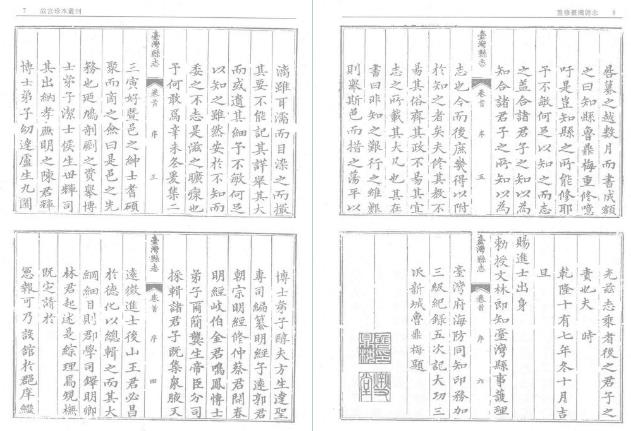 7 故宮珍本叢刊
滴雖耳濡而目染之而撮
其要不能記其詳舉其大
而或遺其細予不敏何足
以知之雖然安於不知而
委之不志是滋之曠瘝也
予何敢爲辛未冬爰集二
臺灣縣志 卷首 序 三
三寅好暨邑之紳士耆碩
聚而商之僉曰是邑之先
務也廼鳩剞劂之資舉博
士弟子潔士侯生世輝司
其出納孝廉明之陳君輝
博士弟子幼達盧生九圍
博士弟子醇夫方生達聖
專司編纂明經子遠郭君
朝宗明經修仲蔡君開春
明經岐伯金君鳴鳳博士
弟子爾簡龔生帝臣分司
採輯諸君子既集裘腋天
臺灣縣志 卷首 序 四
遠徵進士後山王君必昌
於德化以總輯之而其大
綱細目則郡學司鐸明卿
林君起述是綜理焉規橅
既定請於
憲報可乃設館於郡庠
重修臺灣縣志 8
纂之越數月而書成額
之曰知縣魯鼎梅重修噫
吁是豈知縣之所能修耶
予不敏何足以知之而志
之蓋合諸君子之所以爲
知合諸君子之所知以爲
臺灣縣志 卷首 序 五
志也今而後庶幾得以附
於知之者矣夫修其教不
易其俗齊其政不易其宜
志之所載其大凡也其在
書曰非知之艱行之維艱
則舉斯邑而措之蕩平以
光玆志乘者後之君子之
責也夫 時
乾隆十有七年冬十月吉
旦
賜進士出身
勅授文林郎知臺灣縣事護理
臺灣縣志 卷首 序 六
臺灣府海防同知印務加
三級紀錄五次記大功三
次新城魯鼎梅題